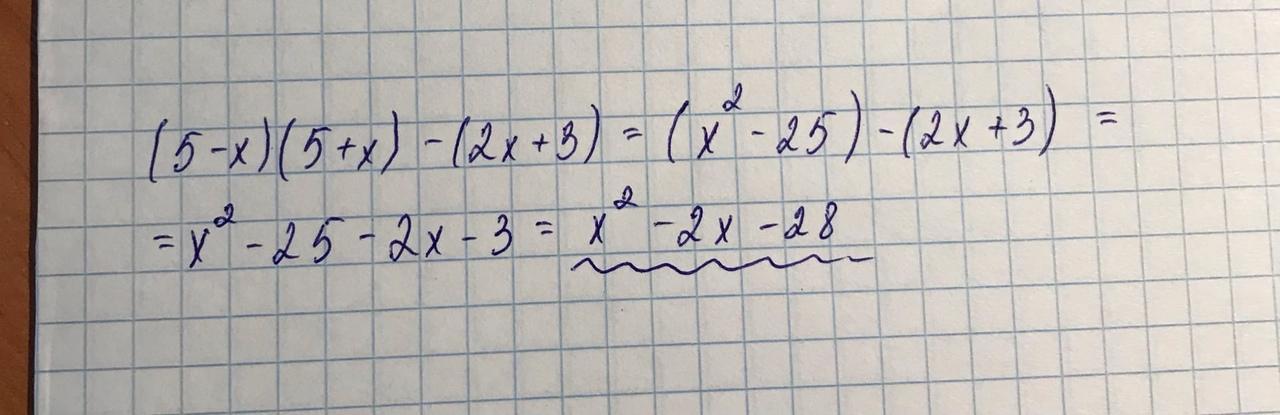 (5-x)(5+x) -(2x+3) = (x² -25) -(2x+3) =
= x² -25 -2x -3 = x² -2x -28